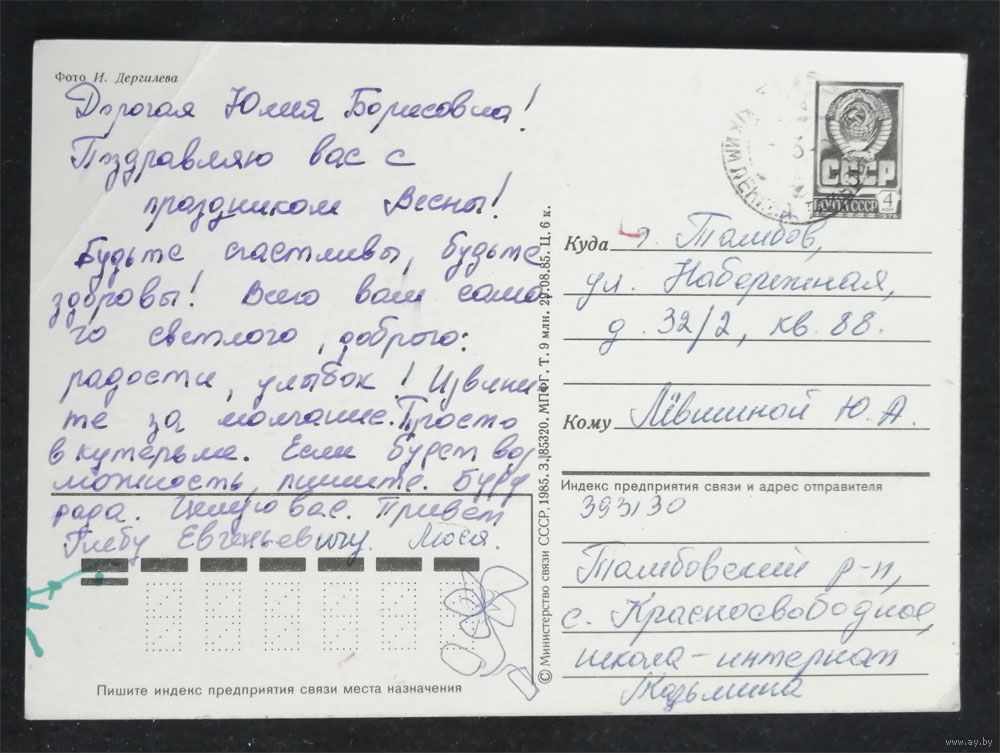 Фото И. Дергилева
Дорогая Юлия Борисовна!
Пздравляю вас с
праздником Весны!
Будьте счастливы, будьте
здоровы! Всего вам само
го светлого, доброго:
радости, улыбок! Извини
те за молчание. Просто
в кутерьме. Если будет воз
можность, пишите. Буду
рада. Целую вас. Привет
Глебу Евгеньевичу. Люся.
Пишите индекс предприятия связи места назначения
© Министерство связи СССР, 1985. З. 85320. МПФГ. Т. 9 млн. 29.08.85. Ц. 6 к.
СССР
ПОЧТА СССР 4
Куда г. Тамбов,
ул. Набережная,
д. 32/2, кв. 88.
Кому Лёвшиной Ю. А.
Индекс предприятия связи и адрес отправителя
393130
Тамбовский р-н,
с. Красносвободное,
школа-интернат
Кузьмина
www.ay.by